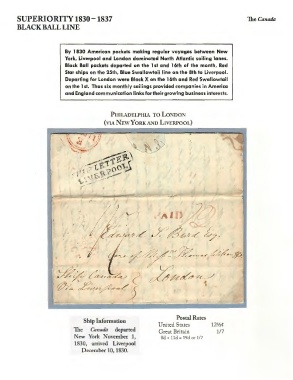 SUPERIORITY 1830 – 1837
The Canada
BLACK BALL LINE
By 1830 American packets making regular voyages between New
York, Liverpool and London dominated North Atlantic sailing lanes.
Black Ball packets departed on the 1st and 16th of the month, Red
Star ships on the 25th, Blue Swallowtail line on the 8th to Liverpool.
Departing for London were Black X on the 16th and Red Swallowtail
on the 1st. Thus six monthly sailings provided companies in America
and England communication links for their growing business interests.
PHILADELPHIA TO LONDON
(VIA NEW YORK AND LIVERPOOL)
SHIP LETTER
LIVERPOOL
PAID
Edward S. Burd Esq
care of
London
Ship Canada
via Liverpool
Ship Information
The Canada departed
New York November 1,
1830, arrived Liverpool
December 10, 1830.
Postal Rates
United States 12½¢
Great Britain 1/7
8d + 11d = 19d or 1/7